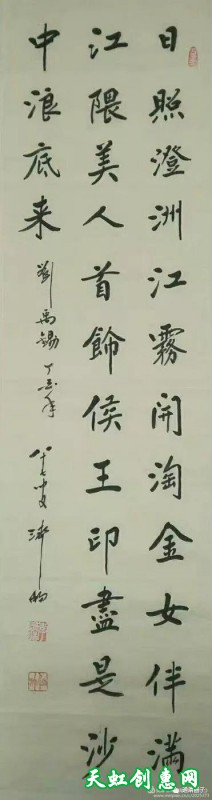 日照澄洲江霧開淘金女伴滿
江隈美人首飾侯王印盡是沙
中浪底来
劉禹錫
天虹创惠网